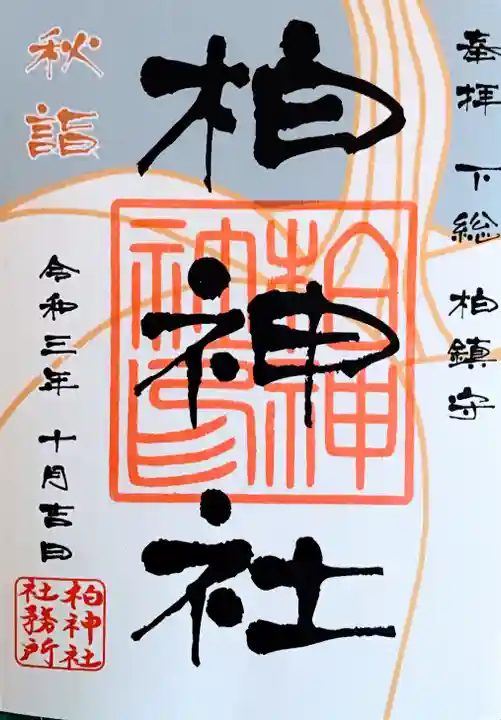 奉拝 下総 柏鎮守
柏神社
秋詣
令和三年 十月吉日
柏神
社印
柏神社
社務所